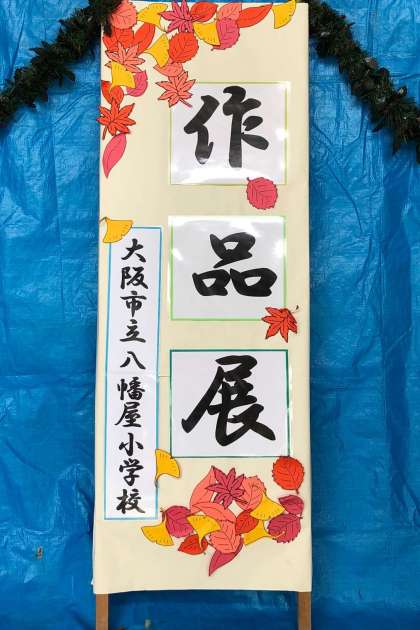 作品展
大阪市立八幡屋小学校